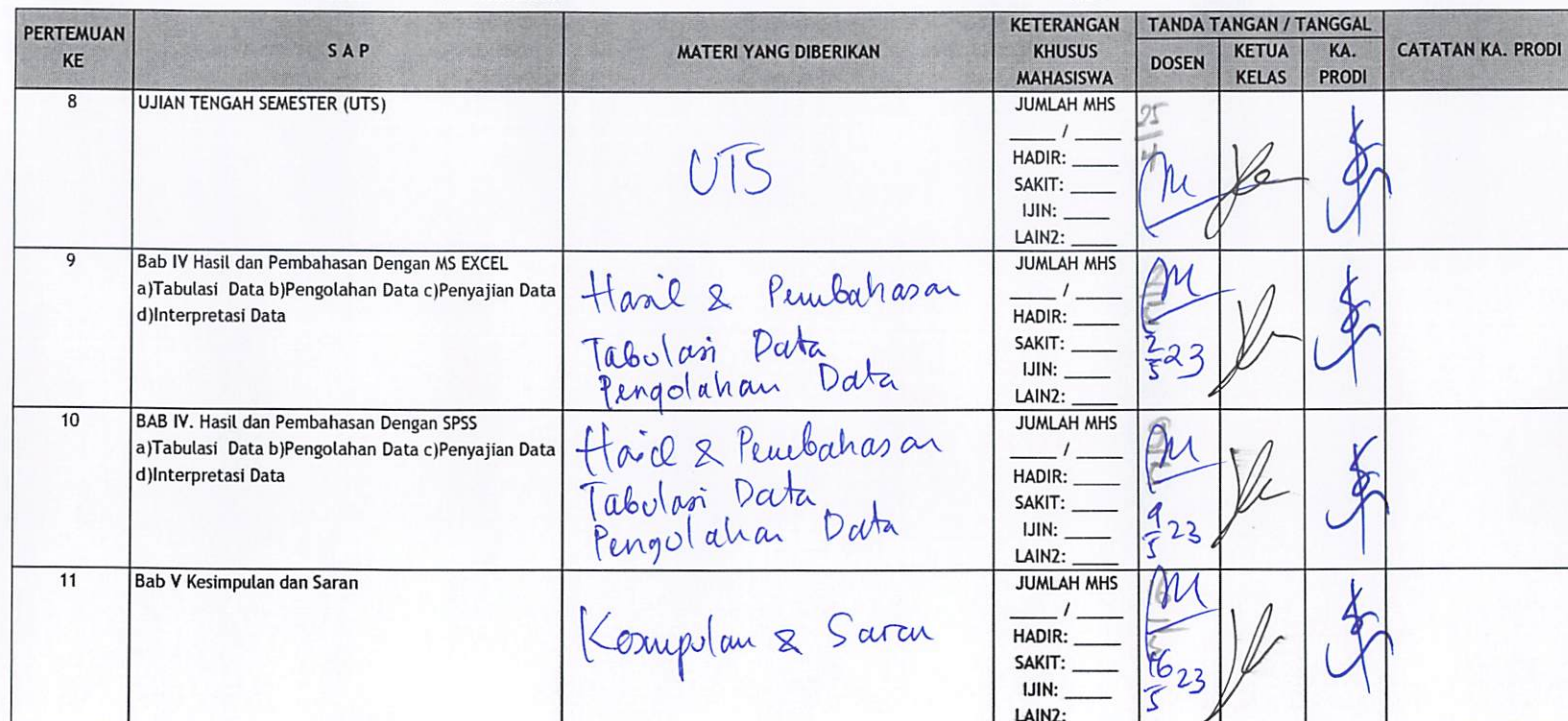 PERTEMUAN KE
S A P
MATERI YANG DIBERIKAN
KETERANGAN KHUSUS MAHASISWA
TANDA TANGAN / TANGGAL
DOSEN
KETUA KELAS
KA. PRODI
CATATAN KA. PRODI
8
UJIAN TENGAH SEMESTER (UTS)
UTS
JUMLAH MHS
____ / ____
HADIR: ____
SAKIT: ____
IJIN: ____
LAIN2: ____
9
Bab IV Hasil dan Pembahasan Dengan MS EXCEL
a)Tabulasi Data b)Pengolahan Data c)Penyajian Data
d)Interpretasi Data
Hasil & Pembahasan
Tabulasi Data
Pengolahan Data
JUMLAH MHS
____ / ____
HADIR: ____
SAKIT: ____
IJIN: ____
LAIN2: ____
2/5 23
10
BAB IV. Hasil dan Pembahasan Dengan SPSS
a)Tabulasi Data b)Pengolahan Data c)Penyajian Data
d)Interpretasi Data
Hasil & Pembahasan
Tabulasi Data
Pengolahan Data
JUMLAH MHS
____ / ____
HADIR: ____
SAKIT: ____
IJIN: ____
LAIN2: ____
9/5 23
11
Bab V Kesimpulan dan Saran
Kesimpulan & Saran
JUMLAH MHS
____ / ____
HADIR: ____
SAKIT: ____
IJIN: ____
LAIN2:
16/5 23